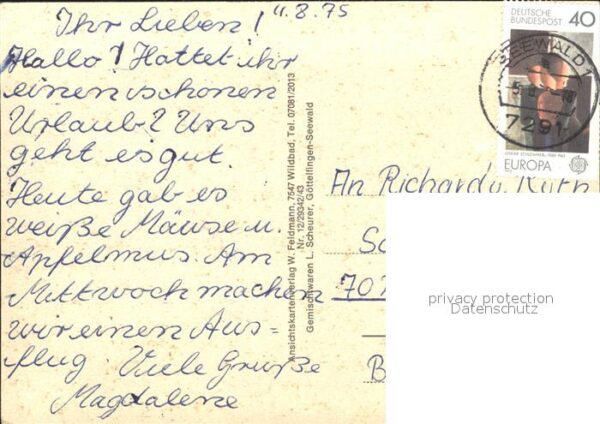 Ihr Lieben! 4.8.75
Hallo! Hattet ihr
einen schönen
Urlaub? Uns
geht es gut.
Heute gab es
weiße Mäuse u.
Apfelmus. Am
Mittwoch machen
wir einen Aus=
flug. Viele Grüße
Magdalene
Ansichtskartenverlag W. Feldmann, 7547 Wildbad, Tel. 07081/2013
Nr. 12/29342/43
Gemischtwaren L. Scheurer, Göttelfingen-Seewald
DEUTSCHE
BUNDESPOST 40
SEEWALD 1
7291
EUROPA
An Richard u.
70
privacy protection
Datenschutz